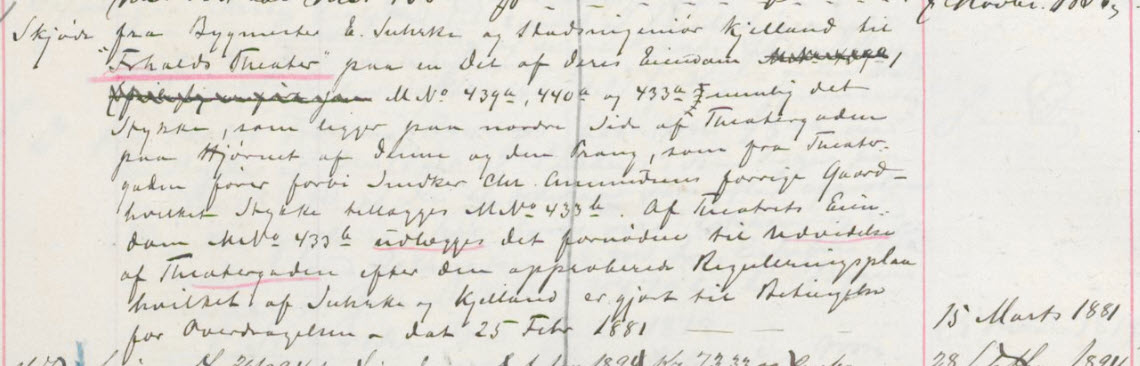 Skjøde fra Bygmester E. Suhrke og Stadsingeniør Kjelland til
"Frhalds Theater" paa en Del af deres Eiendom
MNo 439a, 440a og 433a nemlig det
Stykke, som ligger paa nordre Side af Theatergaden
paa Hjørnet af denne og den Prang, som fra Theater-
gaden fører forbi Snedker Chr. Amundsens forrige Gaard –
hvilket Stykke tillægges MNo 433b. Af Theatrets Eien-
dom MNo 433b udlægges det fornødne til Udvidelse
af Theatergaden efter den approberede Reguleringsplan
hvilket af Suhrke og Kjelland er gjort til Betingelse
for Overdragelsen – dat 25 Febr 1881 — —
15 Marts 1881